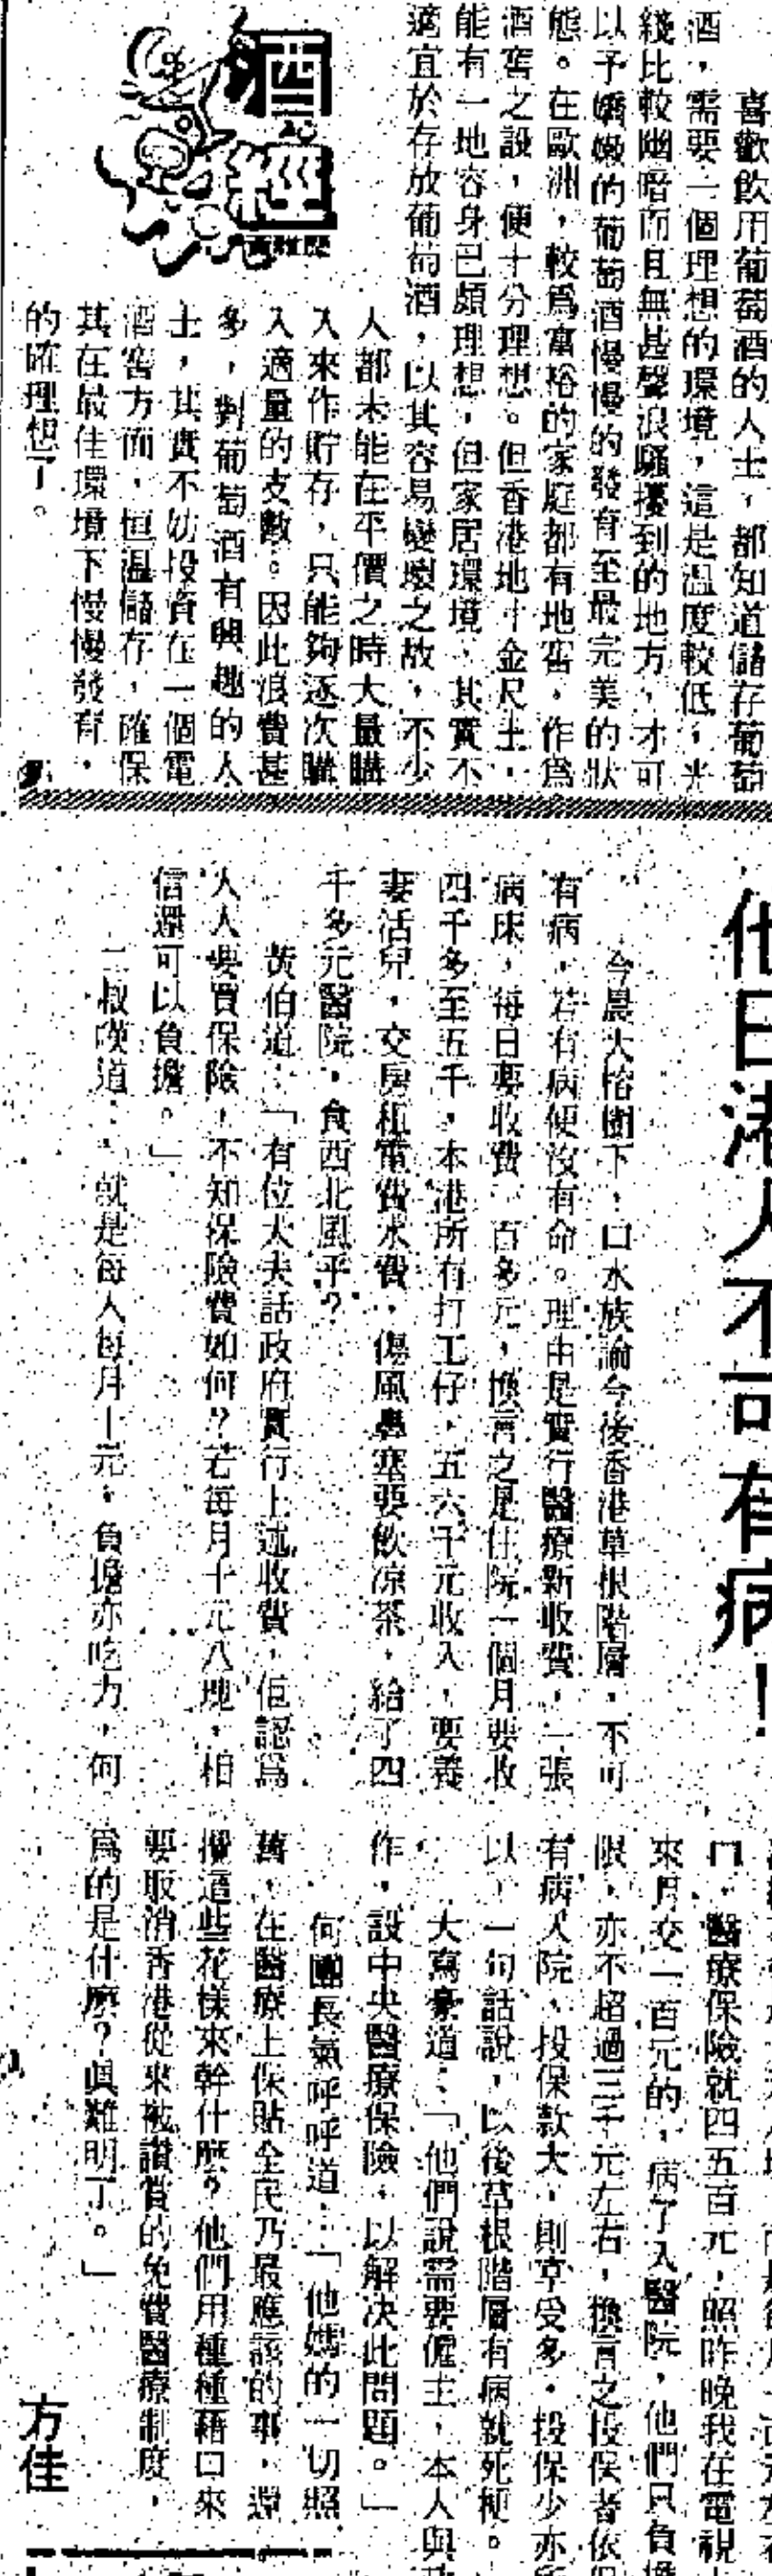 酒經
喜歡飲用葡萄酒的人士，都知道儲存葡萄
酒，需要一個理想的環境，這是温度較低，光
綫比較幽暗而且無甚聲浪騷擾到的地方，才可
以予嬌嫩的葡萄酒慢慢的發育至最完美的狀
態。在歐洲，較爲富裕的家庭都有地窖，作爲
酒窖之設，便十分理想。但香港地寸金尺土，
能有一地容身已頗理想，但家居環境，其實不
適宜於存放葡萄酒，以其容易變壞之故，不少
人都未能在平價之時大量購
入來作貯存，只能夠逐次購
入適量的支數。因此浪費甚
多，對葡萄酒有興趣的人
士，其實不妨投資在一個電
酒窖方面，恒温儲存，確保
其在最佳環境下慢慢發育，
的確理想了。
他日港人不可有病！
今晨大榕樹下，口水族論今後香港草根階層，不可
有病，若有病便沒有命。理由是實行醫療新收費，一張
病床，每日要收費一百多元，換言之是住院一個月要收
四千多至五千，本港所有打工仔，五六千元收入，要養
妻活兒，交房租電費水費，傷風鼻塞要飲凉茶，給了四
千多元醫院，食西北風乎？
黃伯道：「有位大夫話政府實行上述收費，佢認爲
人人要買保險，不知保險費如何？若每月十元八塊，相
信還可以負擔。」
二叔嘆道：「就是每人每月十元，負擔亦吃力，何
口，醫療保險就四五百元，照昨晚我在電視
來月交一百元的，病了入醫院，他們只負擔
限，亦不超過三千元左右，換言之投保者依
有病入院，投保款大，則享受多，投保少亦
以，一句話說，以後草根階層有病就死梗。
大寫豪道：「他們說需要僱主，本人與
作，設中央醫療保險，以解決此問題。」
何團長氣呼呼道：「他媽的一切照
舊，在醫療上保貼全民乃最應該的事，還
攪這些花樣來幹什麽？他們用種種藉口來
要取消香港從來被讃賞的免費醫療制度，
爲的是什麽？眞難明了。」
方佳